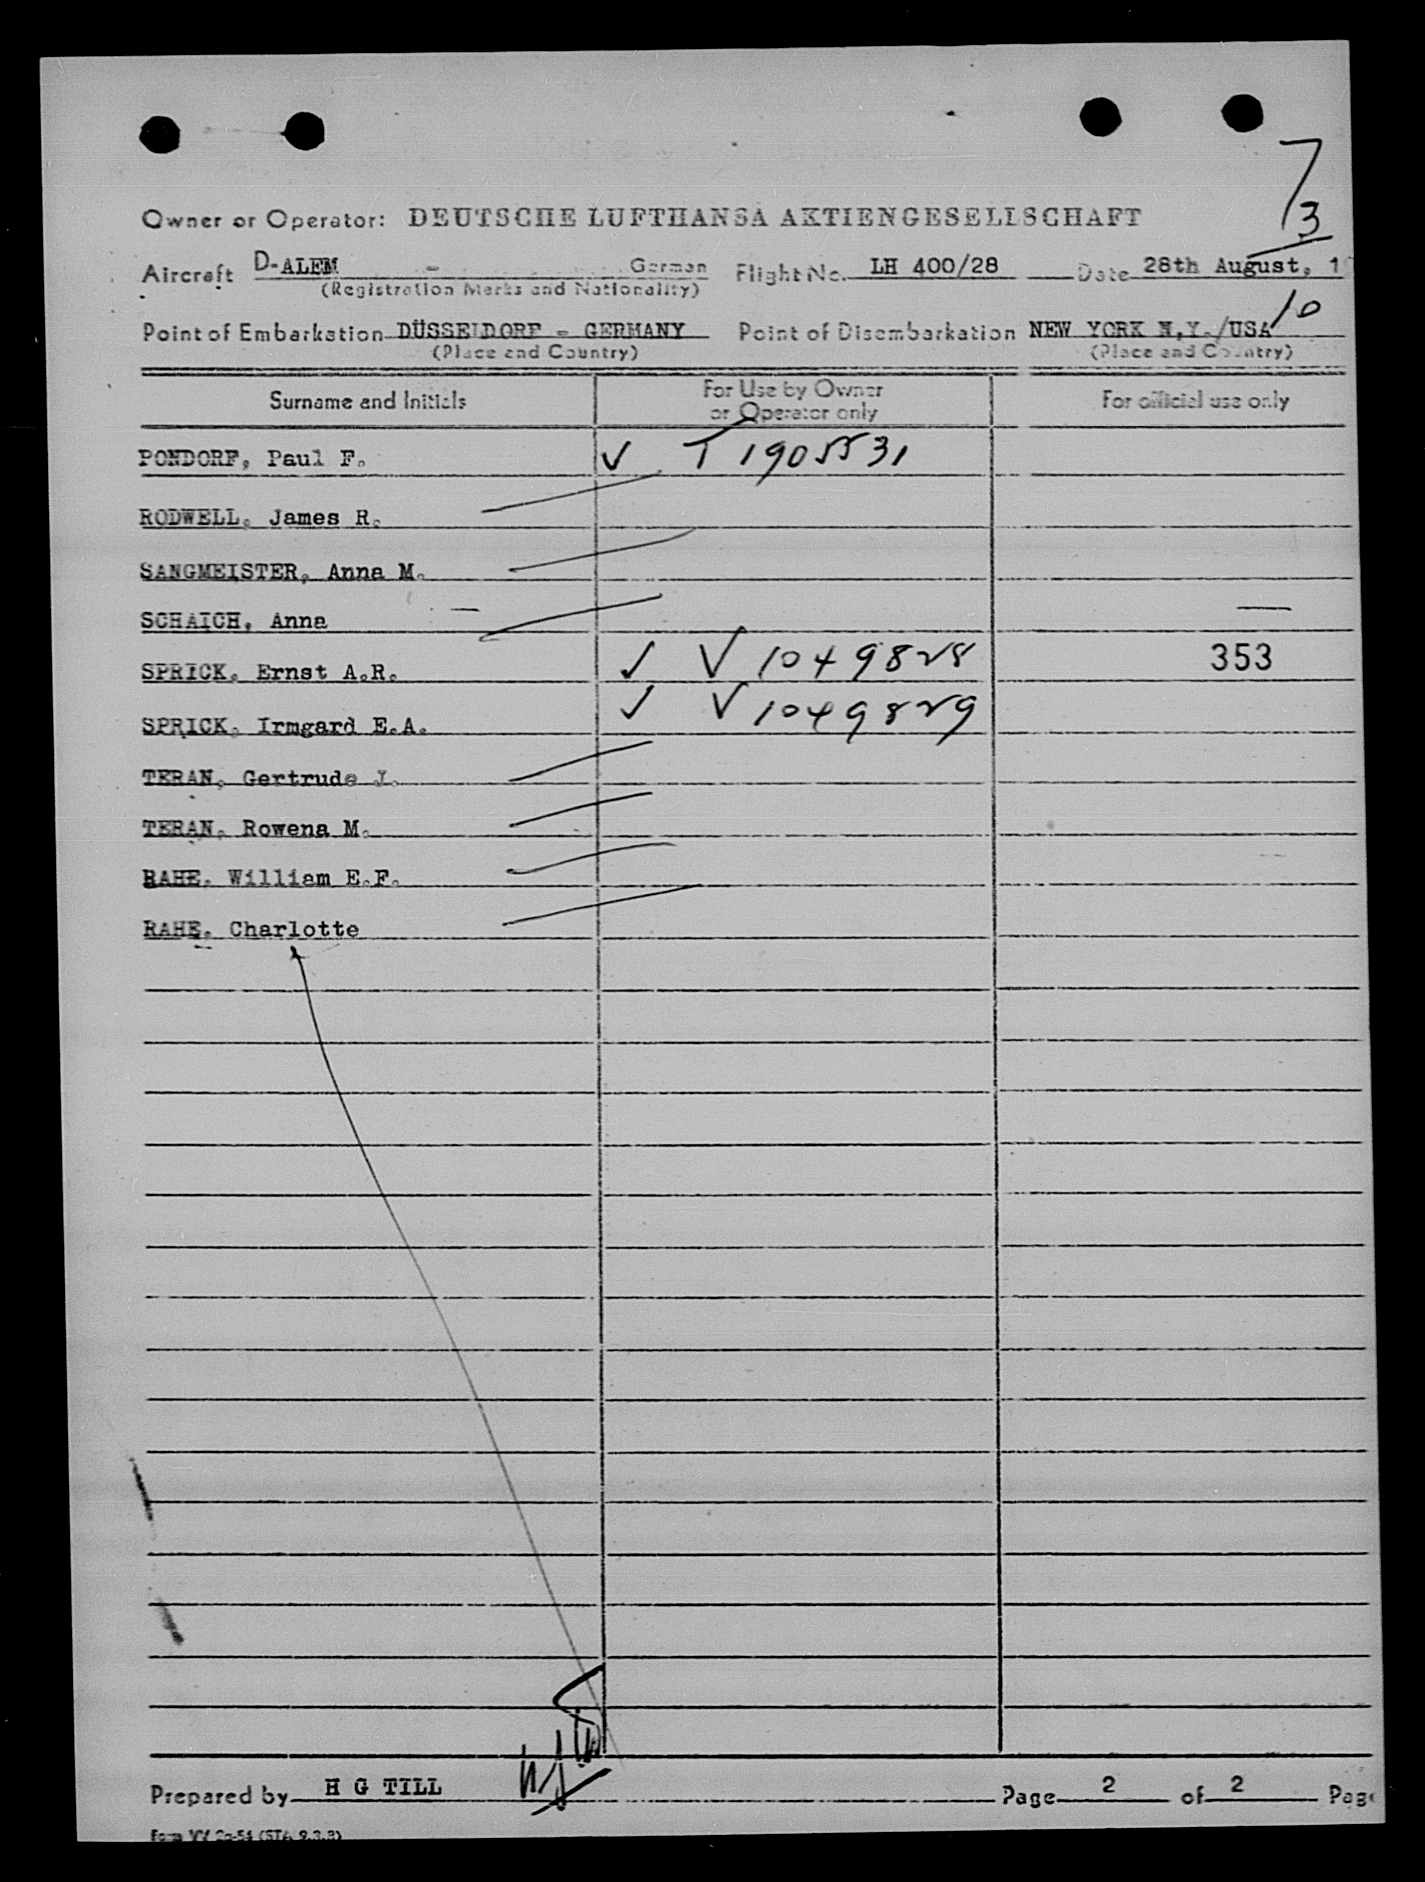 7/3
Owner or Operator: DEUTSCHE LUFTHANSA AKTIENGESELLSCHAFT
Aircraft D-ALEM - German Flight No. LH 400/28 Date 28th August, 1
(Registration Marks and Nationality)
10
Point of Embarkation DÜSSELDORF - GERMANY Point of Disembarkation NEW YORK N.Y./USA
(Place and Country) (Place and Country)
Surname and Initials For Use by Owner or Operator only For official use only
PONDORF, Paul F. ✓ T 1905531
RODWELL, James R.
SANGMEISTER, Anna M.
SCHAICH, Anna
SPRICK, Ernst A.R. ✓ V 1049828 353
SPRICK, Irmgard E.A. ✓ V 1049829
TERAN, Gertrude J.
TERAN, Rowena M.
RAHE, William E.F.
RAHE, Charlotte
Prepared by H G TILL Page 2 of 2 Page